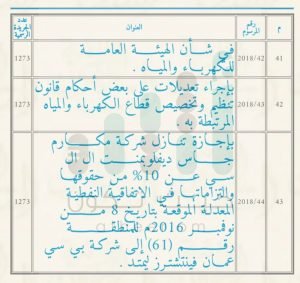 م
رقم المرسوم
العنوان
عدد الجريدة الرسمية
41
2018/42
في شأن الهيئة العامة
للكهرباء والمياه .
1273
42
2018/43
بإجراء تعديلات على بعض أحكام قانون
تنظيم وتخصيص قطاع الكهرباء والمياه
المرتبطة به .
1273
43
2018/44
بإجازة تنازل شركة مكارم
جاس ديفلوبمنت ال ال
سي عن 10% من حقوقها
والتزاماتها في الاتفاقية النفطية
المعدلة الموقعة بتاريخ 8 من
نوفمبر 2016م للمنطقة
رقم (61) إلى شركة بي سي
عمان فينتشرز ليمتد .
1273